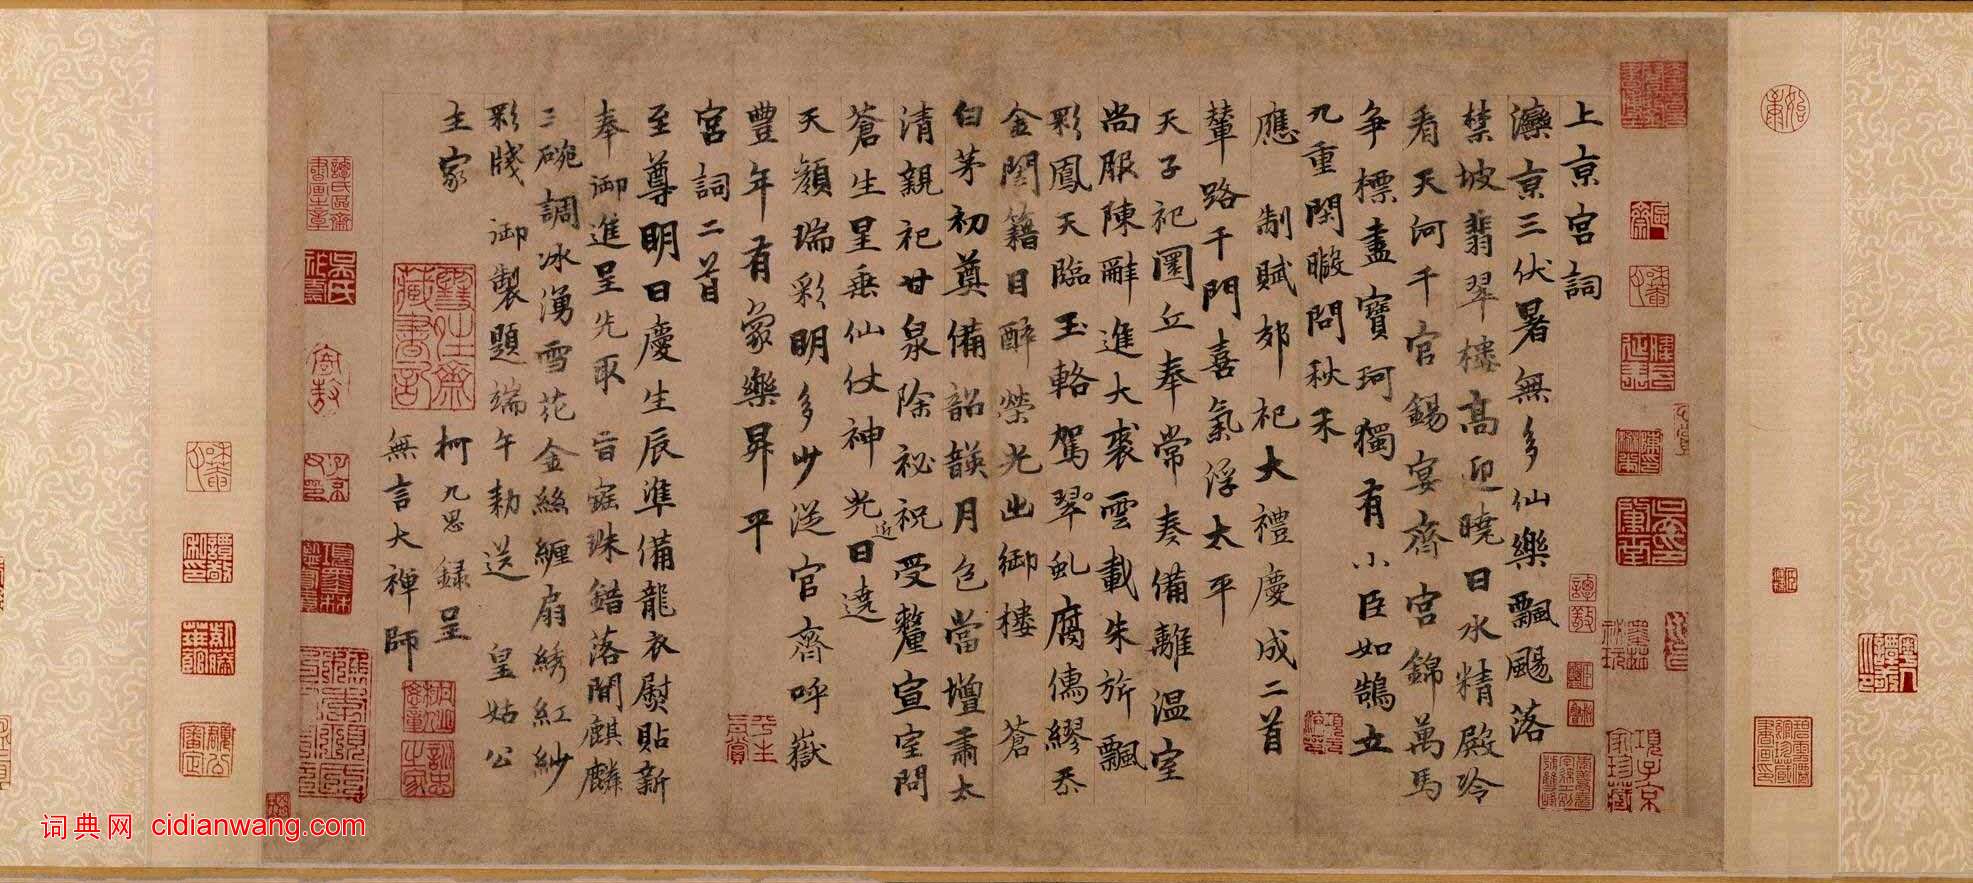 上京宮詞
灤京三伏暑無多仙樂飄颺落
禁坡翡翠樓高迎曉日水精殿冷
看天河千官錫宴齊宮錦萬馬
争標盡寶珂獨有小臣如鵠立
九重閑暇問秋禾
應制賦郊祀大禮慶成二首
輦路千門喜氣浮太平
天子祀圜丘奉常奏備離温室
尚服陳辭進大裘雲載朱旂飄
彩鳳天臨玉輅駕翠虬腐儒繆忝
金閨籍目醉榮光出御樓 蒼
白茅初奠備韶韺月色當壇肅太
清親祀甘泉除祕祝受釐宣室問
蒼生星垂仙仗神光近日遶
天顏瑞彩明多少從官齊呼嶽
豐年有象樂昇平
宮詞二首
至尊明日慶生辰準備龍衣熨貼新
奉御進呈先取旨 珠錯落間麒麟
二碗調冰湧雪花金絲纏扇綉紅紗
彩牋御製題端午勅送皇姑公
主家
柯九思錄呈
無言大禪師
词典网 cidianwang.com